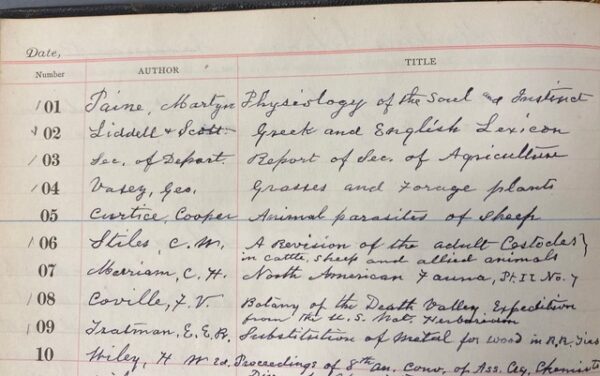 Date,
Number AUTHOR TITLE
01 Paine, Martyn Physiology of the Soul and Instinct
02 Liddell & Scott Greek and English Lexicon
03 Sec. of Depart. Report of Sec. of Agriculture
04 Vasey, Geo. Grasses and Forage plants
05 Curtice, Cooper Animal parasites of Sheep
06 Stiles, C. W. A Revision of the adult Cestodes }
in cattle, sheep and allied animals
07 Merriam, C. H. North American Fauna, No. 7
08 Coville, F. V. Botany of the Death Valley Expedition
from the U. S. Nat. Herbarium
09 Tratman, E. E. R. Substitution of Metal for wood in R.R. Ties
10 Wiley, H W Ed. Proceedings of 8th an. conv. of Ass. Chemists